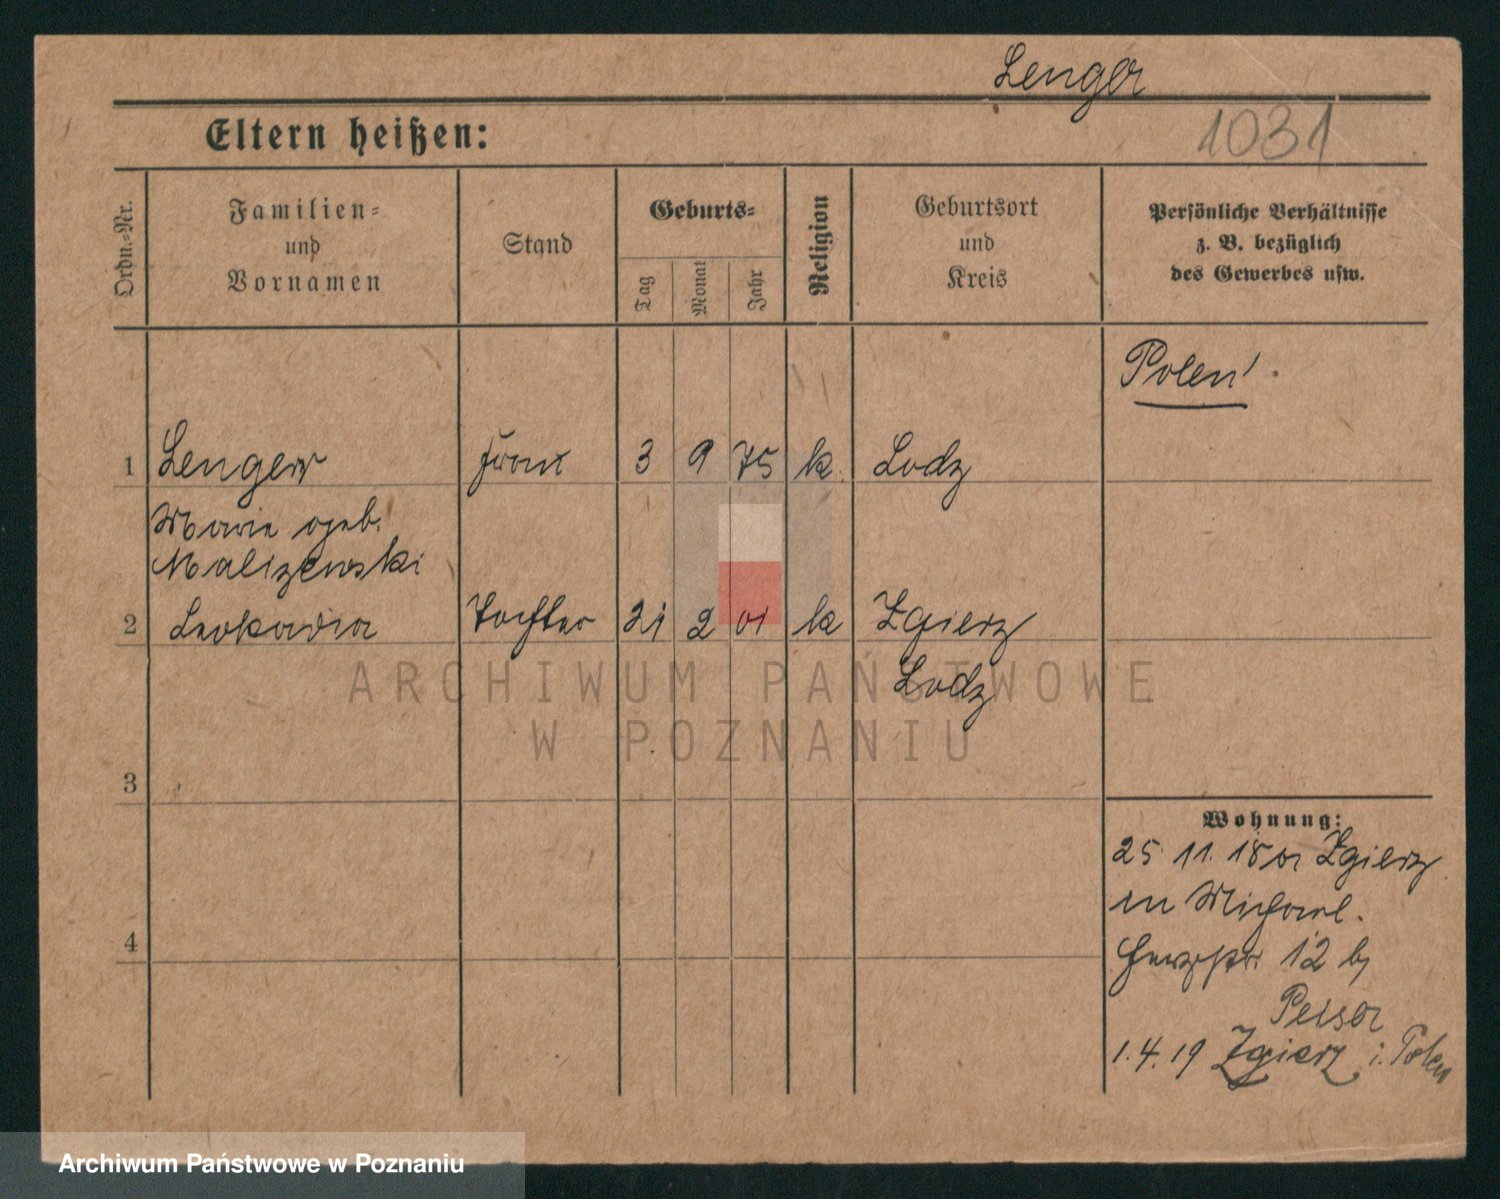 Lenger
1031
Eltern heißen:
Ordn.-Nr.
Familien-
und
Vornamen
Stand
Geburts-
Tag
Monat
Jahr
Religion
Geburtsort
und
Kreis
Persönliche Verhältnisse
z. B. bezüglich
des Gewerbes usw.
Polen
1 Lenger Frau 3 9 75 k. Lodz
Marie geb.
Maliszewski
2 Leokadia Tochter 21 2 01 k Zgierz
Lodz
3
4
Wohnung:
25 11. 18 Zgierz
12 b
Peisar
1.4.19 Zgierz i. Polen
ARCHIWUM PAŃSTWOWE
W POZNANIU
Archiwum Państwowe w Poznaniu